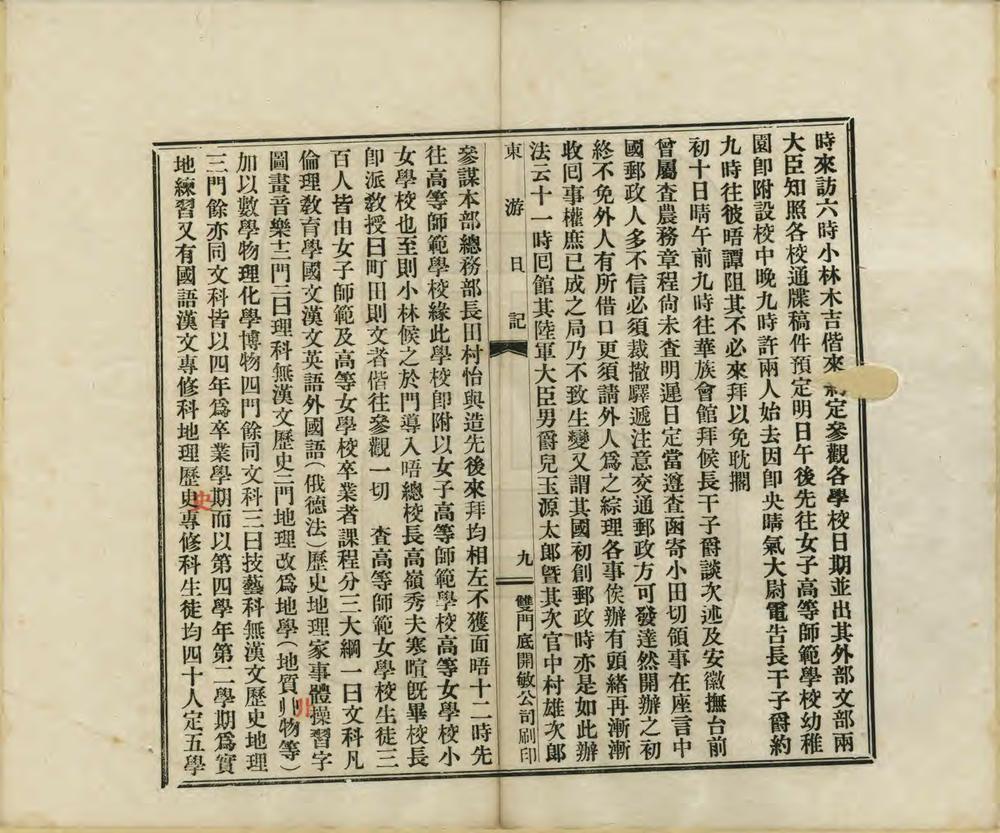 時來訪六時小林木吉偕來剃定參觀各學校日期並出其外部文部兩
大臣知照各校通牒稿件預定明日午後先往女子高等師範學校幼稚
園卽附設校中晚九時許兩人始去因卽央晴氣大尉電告長干子爵約
九時往彼晤譚阻其不必來拜以免耽擱
初十日晴午前九時往華族會館拜候長干子爵談次述及安徽撫台前
曾屬查農務章程尙未查明遲日定當遵查函寄小田切領事在座言中
國郵政人多不信必須裁撤驛遞注意交通郵政方可發達然開辦之初
終不免外人有所借口更須請外人爲之綜理各事俟辦有頭緒再漸漸
收囘事權庶已成之局乃不致生變又謂其國初創郵政時亦是如此辦
法云十一時囘館其陸軍大臣男爵兒玉源太郎曁其次官中村雄次郎
東游日記 九 雙門底開敏公司刷印
參謀本部總務部長田村怡與造先後來拜均相左不獲面晤十二時先
往高等師範學校緣此學校卽附以女子高等師範學校高等女學校小
女學校也至則小林候之於門導入晤總校長高嶺秀夫寒暄旣畢校長
卽派敎授曰町田則文者偕往參觀一切 查高等師範女學校生徒三
百人皆由女子師範及高等女學校卒業者課程分三大綱一曰文科凡
倫理敎育學國文漢文英語外國語(俄德法)歷史地理家事體操習字
圖畫音樂十二門二曰理科無漢文歷史二門地理改爲地學(地質卝物等)
加以數學物理化學博物四門餘同文科三曰技藝科無漢文歷史地理
三門餘亦同文科皆以四年爲卒業學期而以第四學年第二學期爲實
地練習又有國語漢文專修科地理歷史專修科生徒均四十人定五學
史
卝